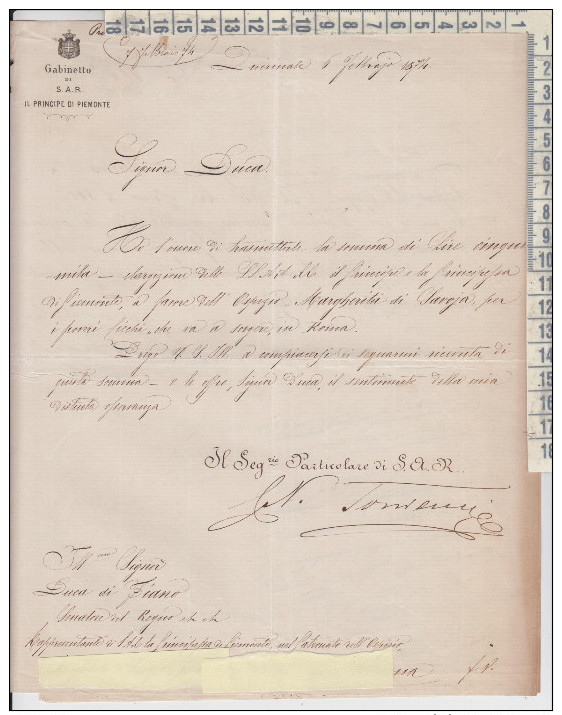 7 Febbraio 74
Gabinetto
DI
S. A. R.
IL PRINCIPE DI PIEMONTE
Quirinale 4 Febbrajo 1874.
Signor Duca.
Ho l'onore di trasmetterle la somma di Lire cinque
mila – elargizione delle LL. AA. RR. il Principe e la Principessa
di Piemonte, a favore dell'Ospizio Margherita di Savoja per
i poveri ciechi, che va a sorgere in Roma.
Prego V. S. Ill. a compiacersi di segnarmi ricevuta di
questa somma – e le offro, Signor Duca, il sentimento della mia
distinta osservanza
Il Seg.rio Particolare di S. A. R.
Ill.mo Signor
Duca di Fiano
Senatore del Regno etc. etc.
Rappresentante di S. A. R. la Principessa di Piemonte, nel Patronato dell'Ospizio
18 17 16 15 14 13 12 11 10 9 8 7 6 5 4 3 2 1
1
2
3
4
5
6
7
8
9
10
11
12
13
14
15
16
17
18